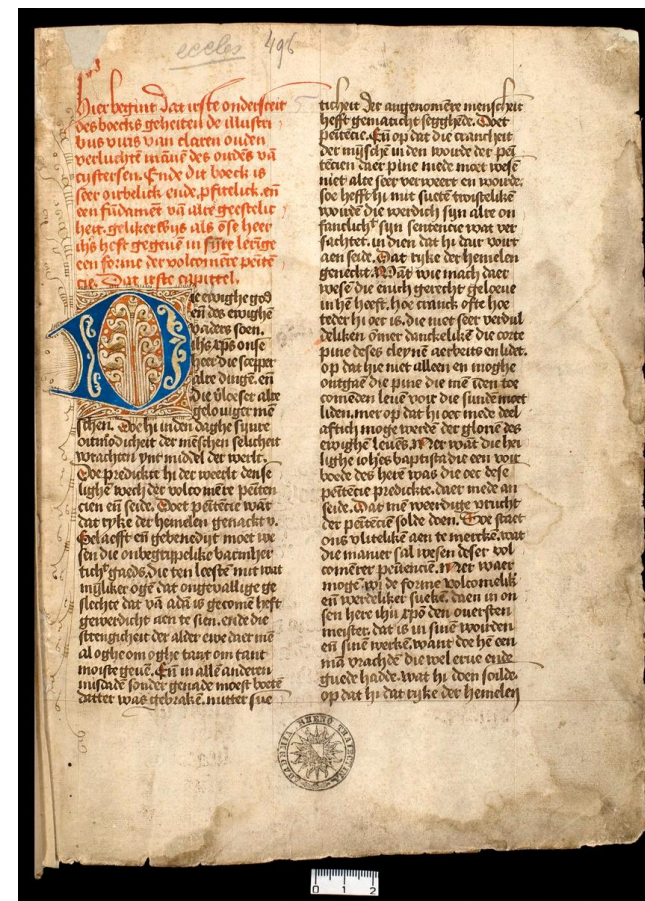 eccles 496
Hier begint dat irste onderscheit
des boecks geheiten de illustri
bus viris van claren ouden
verluchtē mānē des ordēs vā
cistersen. Ende dit boeck is
seer orbelick ende pfitelick. eñ
een fūdamēt vā alre geestelic
heit. gelikerwijs als ōse heer
ihs heft gegevē in sijre leringe
een forme der volcomēre peītē
cie. Dat irste capittel.
Die ewighe god
eñ des ewighē
vaders soen.
ihs xps onse
heer die scepper
alre dingē. eñ
die v̄loeser alre
gelouiger mē
schen. Doe hi in den daghe sijnre
oitmodicheit der mēschen selicheit
wrachten ynt middel der werlt.
Doe predickte hi der weerlt dense
lighē wech der volcomēre peniten
cien eñ seide. Doet penitēcie wāt
dat ryke der hemelen genackt v.
Gelaefft eñ gebenedijt moet we
sen die onbegrijpelike barmher
tichᵗ gaeds. die ten leestē mit wat
mijliker ogē dat ongevallige ge
slechte dat vā adā is gecomē heft
gewerdicht aen te sien. ende die
strengicheit der alder ewe daer mē
al oghe om oghe tant om tant
moiste gevē. Eñ in allē anderen
misdadē sonder genade moest boetē
datter was gebrakē. mitter sue
ticheit der angenomēre menscheit
hefft gematicht segghēde. Doet
penitēcie. Eñ op dat die cranckheit
der mijschē in den woirde der peni
tēcien daer pine mede moet wesē
niet alte seer verveert en worde.
soe hefft hi mit suetē troistelikē
woirdē die werdich sijn alre on
fanclichᵗ sijn sentencie wat ver
sachtet. in dien dat hi dair voirt
aen seide. Dat ryke der hemelen
geneckt. Wāt wie mach daer
wesē die enich gerecht geloeue
in hē heeft. hoe cranck ofte hoe
teder hi oec is. die niet seer verdul
deliken ōmer danckelikē die corte
pine deses cleynē aerbeits en lidet.
op dat hie niet alleen en moghe
ontgaē die pine die mē īden toe
comēden levē voir die sundē moet
liden. mer op dat hi oec mede deel
afftich moge werdē der gloriē des
ewighē levēs. Mer wāt die hei
lighe iohēs baptista die een voir
boede des herē was die oec dese
penitēcie predickte. daer mede an
seide. Dat mē weerdige vrucht
der penitēciē solde doen. Soe staet
ons vlitelikē aen te merckē. wat
die manier sal wesen deser vol
comēre penitenciē. Mer waer
mogē wi de forme volcomelik
eñ werdeliker suekē. dan in on
sen here ihū xpō den ouersten
meister. dat is in sinē woirden
eñ sinē werkē. want doe hē een
mā vrachde die wel erve ende
guede hadde. wat hi doen soilde
op dat hi dat ryke der hemelen
ACADEMIA RHENO TRAIECTINA
0 1 2